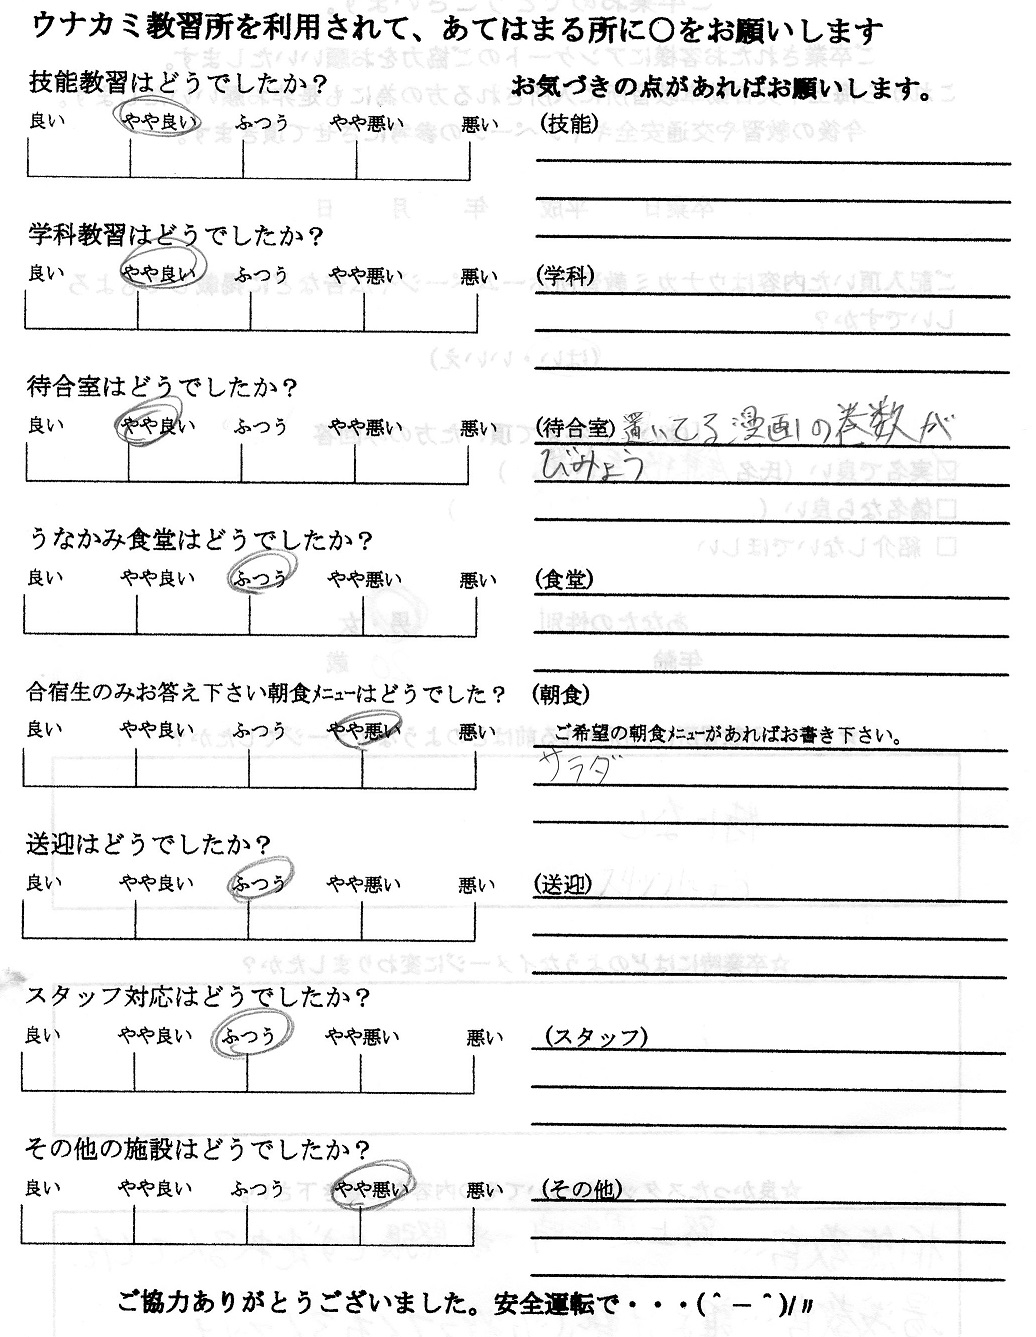 ウナカミ教習所を利用されて、あてはまる所に〇をお願いします
技能教習はどうでしたか？
お気づきの点があればお願いします。
良い やや良い ふつう やや悪い 悪い
(技能)
学科教習はどうでしたか？
良い やや良い ふつう やや悪い 悪い
(学科)
待合室はどうでしたか？
良い やや良い ふつう やや悪い 悪い
(待合室) 置いてる漫画の巻数が
びみょう
うなかみ食堂はどうでしたか？
良い やや良い ふつう やや悪い 悪い
(食堂)
合宿生のみお答え下さい朝食ﾒﾆｭｰはどうでした？
(朝食)
良い やや良い ふつう やや悪い 悪い
ご希望の朝食ﾒﾆｭｰがあればお書き下さい。
サラダ
送迎はどうでしたか？
良い やや良い ふつう やや悪い 悪い
(送迎)
スタッフ対応はどうでしたか？
良い やや良い ふつう やや悪い 悪い
(スタッフ)
その他の施設はどうでしたか？
良い やや良い ふつう やや悪い 悪い
(その他)
ご協力ありがとうございました。安全運転で・・・(＾－＾)/〃